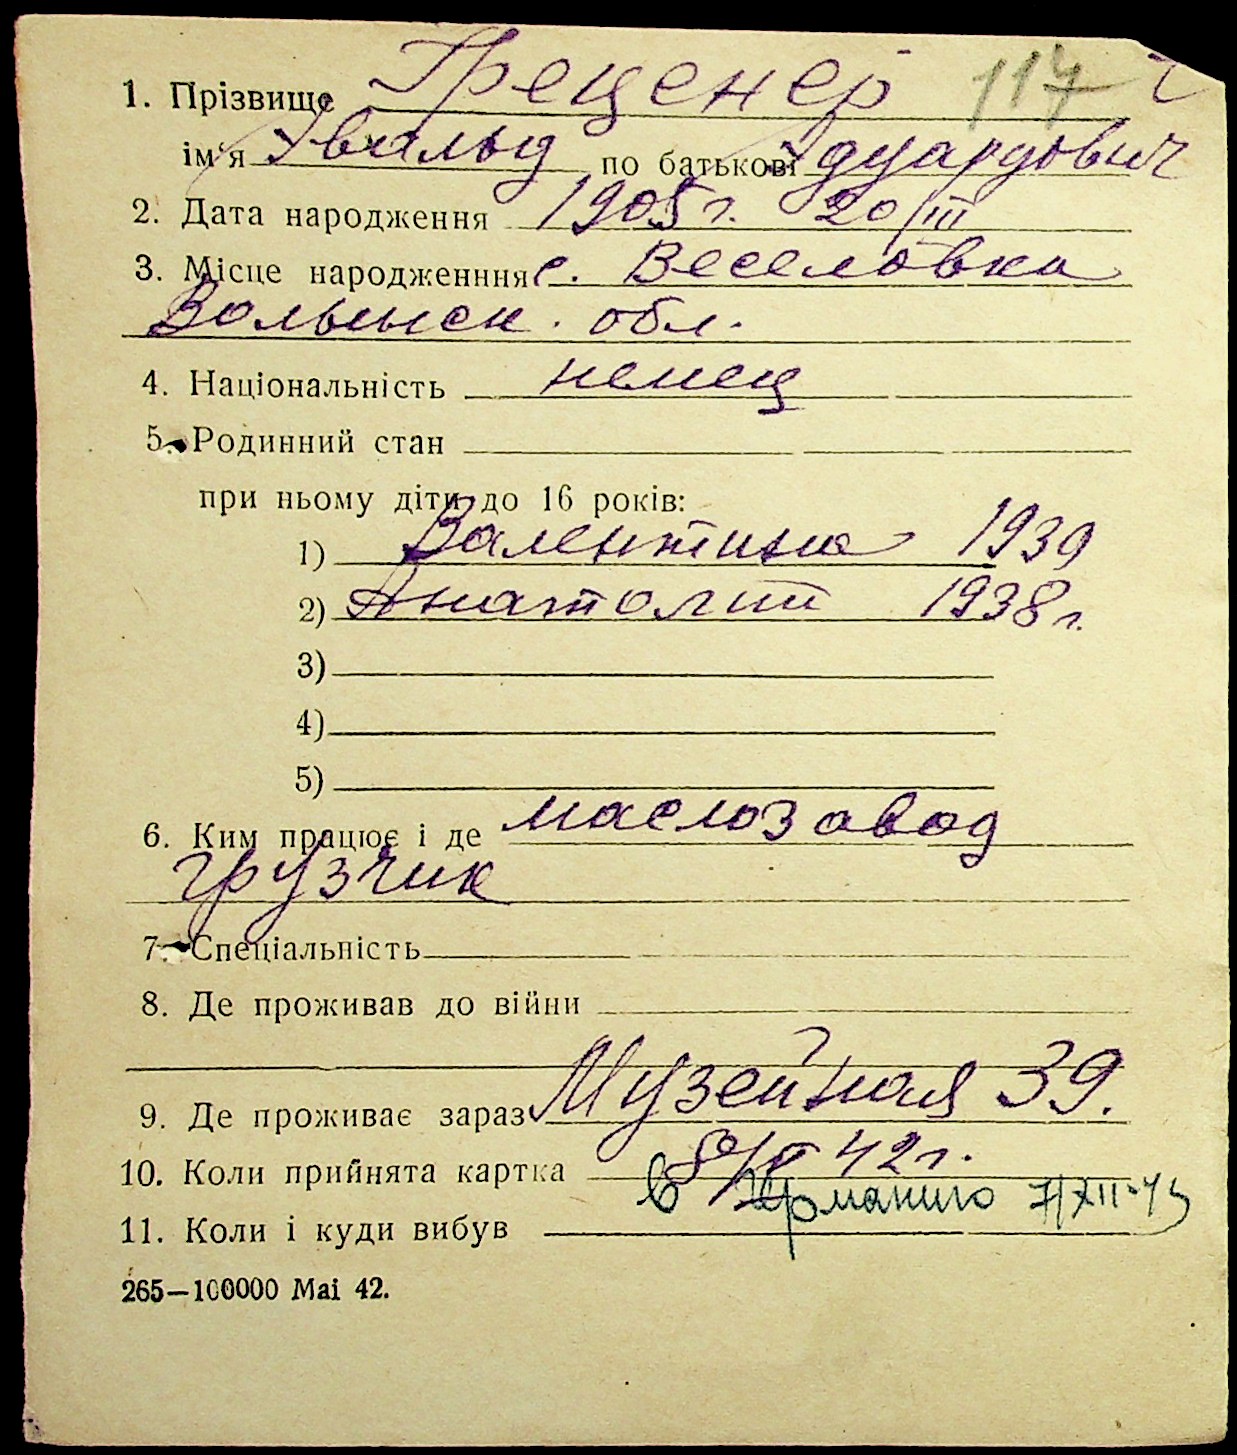 1. Прізвище Греценер 117
ім'я Эвальд по батькові Эдуардович
2. Дата народження 1905 г. 20/III
3. Місце народженння с. Веселовка
Волынск. обл.
4. Національність немец
5. Родинний стан
при ньому діти до 16 років:
1) Валентина 1939
2) Анатолий 1938 г.
3)
4)
5)
6. Ким працює і де маслозавод
грузчик
7. Спеціальність
8. Де проживав до війни
9. Де проживає зараз Музейная 39.
10. Коли прийнята картка 42 г.
11. Коли і куди вибув в Германию 7/XII-43
265—100000 Mai 42.